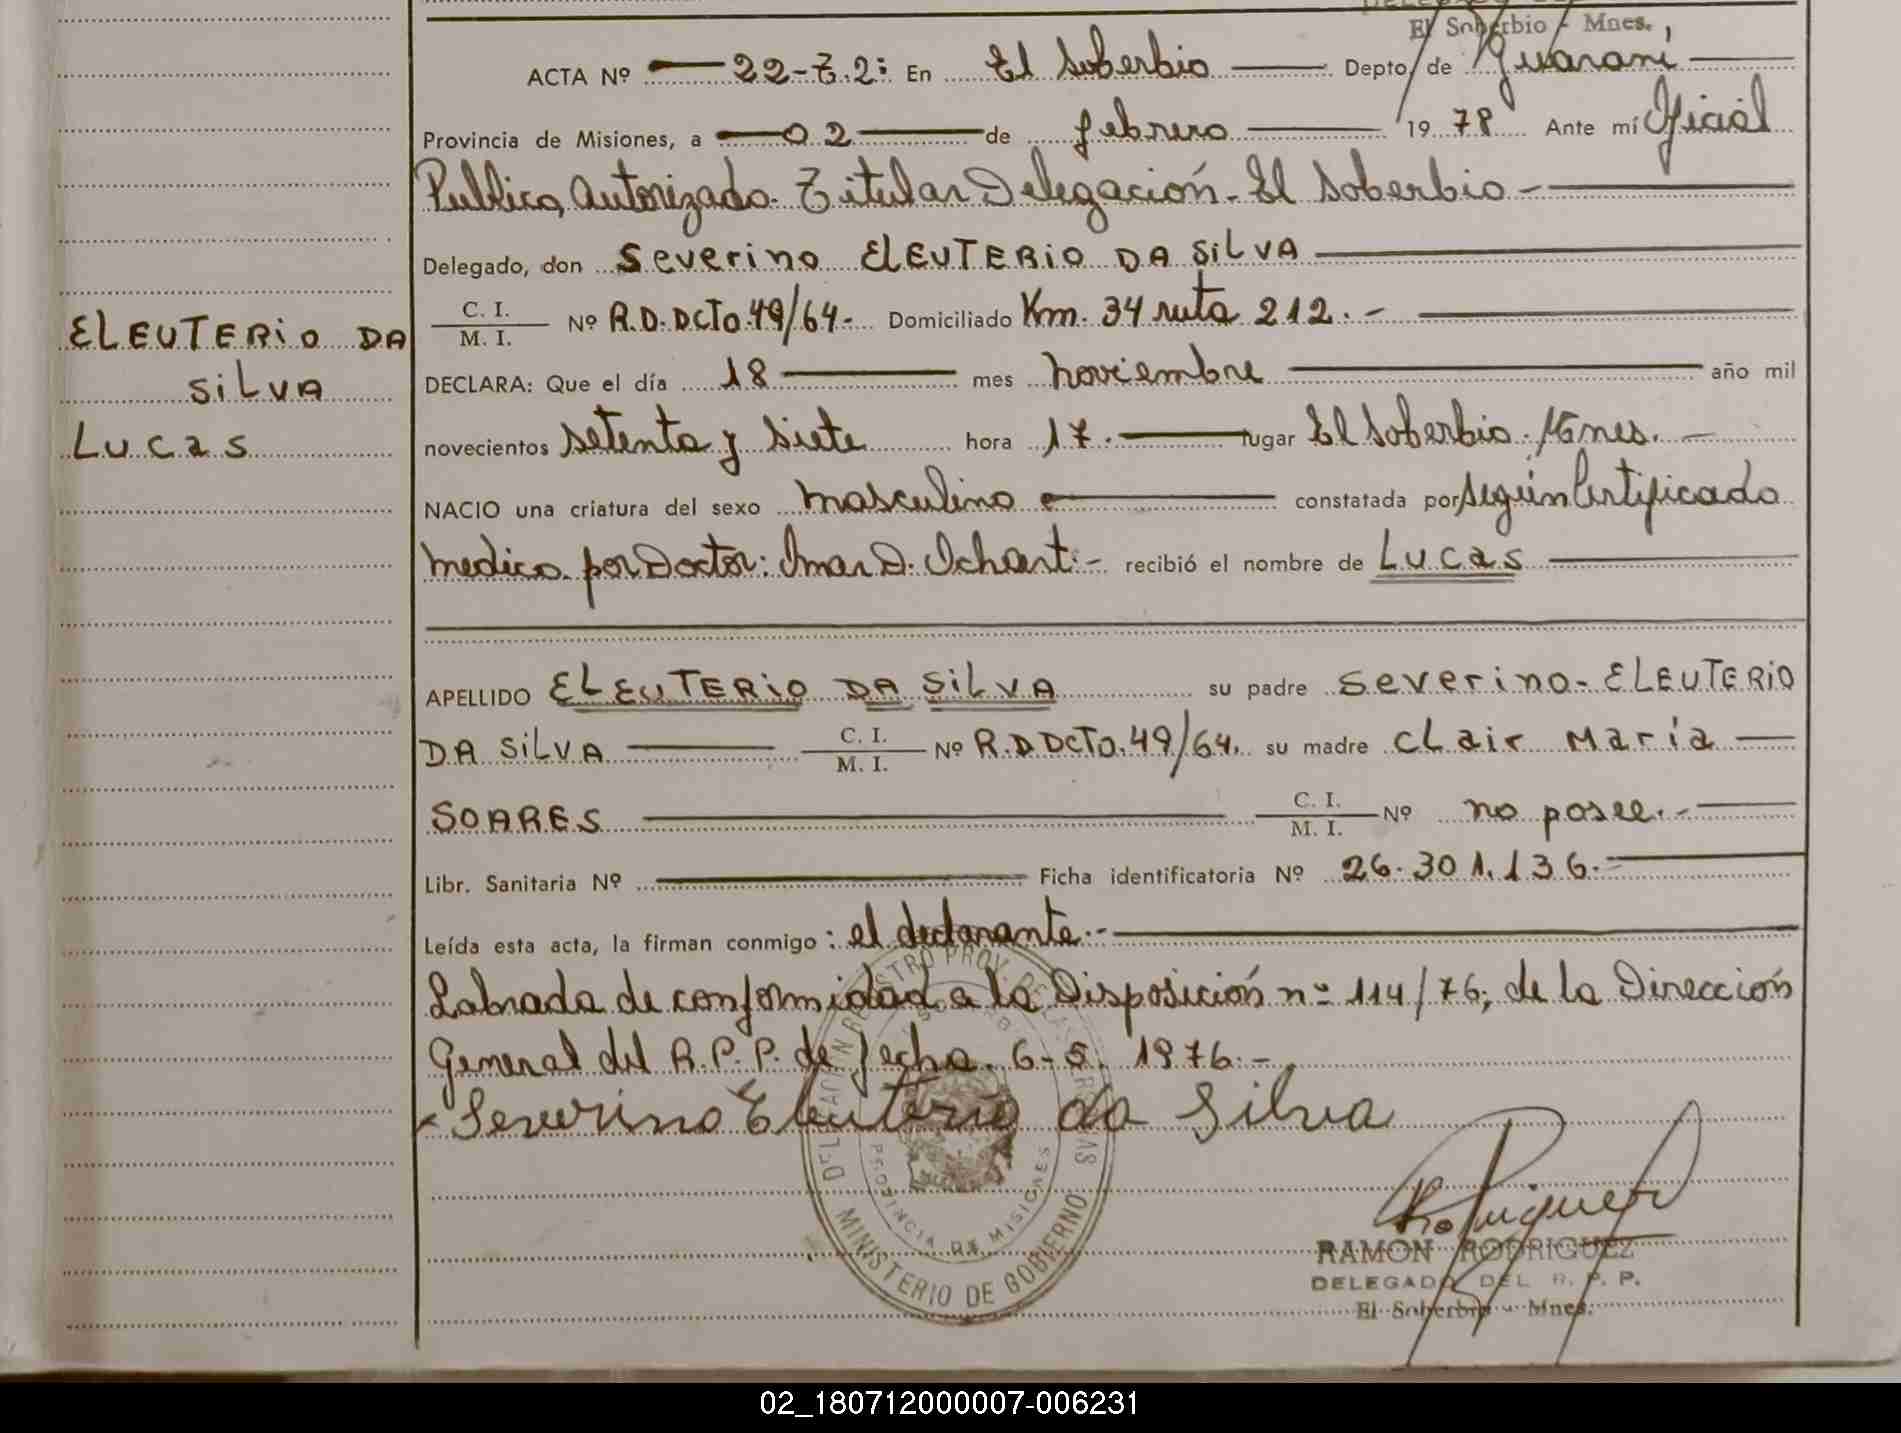 El Soberbio - Mnes.
ACTA Nº 22-T.2: En El Soberbio Depto. de Guaraní,
Provincia de Misiones, a 02 de febrero 19 78 Ante mí Oficial
Publico Autorizado. Titular Delegación - El Soberbio -
Delegado, don Severino ELEUTERIO DA SiLVA
C. I.
M. I. Nº R.D. DCTO. 49/64. Domiciliado Km. 34 ruta 212. -
DECLARA: Que el día 18 mes noviembre año mil
novecientos setenta y siete hora 17. lugar El Soberbio. Mnes. -
NACIO una criatura del sexo masculino constatada por según Certificado
medico por Doctor: recibió el nombre de Lucas
ELEUTERIO DA
SiLVA
Lucas
APELLIDO ELEUTERIO DA SiLVA su padre Severino - ELEUTERIO
DA SiLVA C. I.
M. I. Nº R.D DCTO. 49/64. su madre CLair Maria
SOARES C. I.
M. I. Nº no posee. -
Libr. Sanitaria Nº Ficha identificatoria Nº 26.301.136. -
Leída esta acta, la firman conmigo : el declarante. -
Labrada de conformidad a la Disposición nº 114/76, de la Dirección
General del R.P.P. de fecha. 6-5. 1976. -
x Severino Eleuterio da Silva
PROVINCIA DE MISIONES
MINISTERIO DE GOBIERNO
Rodriguez
RAMON RODRIGUEZ
DELEGADO DEL R. P. P.
El Soberbio - Mnes.
02_180712000007-006231